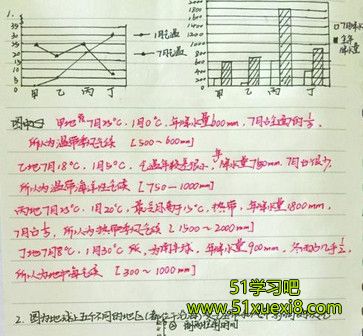 1.
35
30
25
20
15
10
5
0
甲 乙 丙 丁
1月气温
7月气温
2000
1800
1600
1400
1200
1000
800
600
400
200
0
甲 乙 丙 丁
7月降水
全年
降水量
甲地 7月25℃，1月0℃，年降水量600mm，7月占全面的
所以为温带季风气候 [500~600]
乙地7月18℃，1月5℃，气温年较差很小，年降水量750mm，7月占很少
所以为温带海洋性气候 [750—1000mm]
丙地7月25℃，1月20℃，最冷月高于15℃，热带，年降水量1800mm，
7月占 ，所以为热带季风气候 [1500~2000mm]
丁地7月8℃，1月30℃ ，为南半球，年降水量900mm，
所以为地中海气候 [300~1000mm]
51学习吧
www.51xuexi8.com
2. 图为地球上五个不同的地区